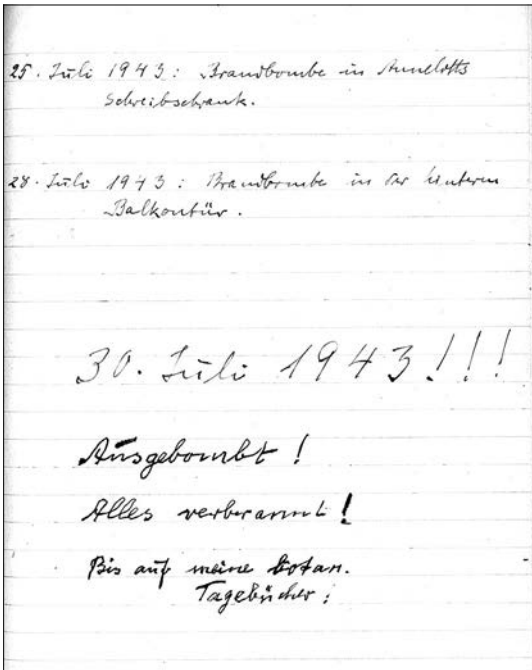 25. Juli 1943: Brandbombe in Annelotts
Schreibschrank.
28. Juli 1943: Brandbombe in der hinteren
Balkontür.
30. Juli 1943!!!
Ausgebombt!
Alles verbrannt!
Bis auf meine botan.
Tagebücher: